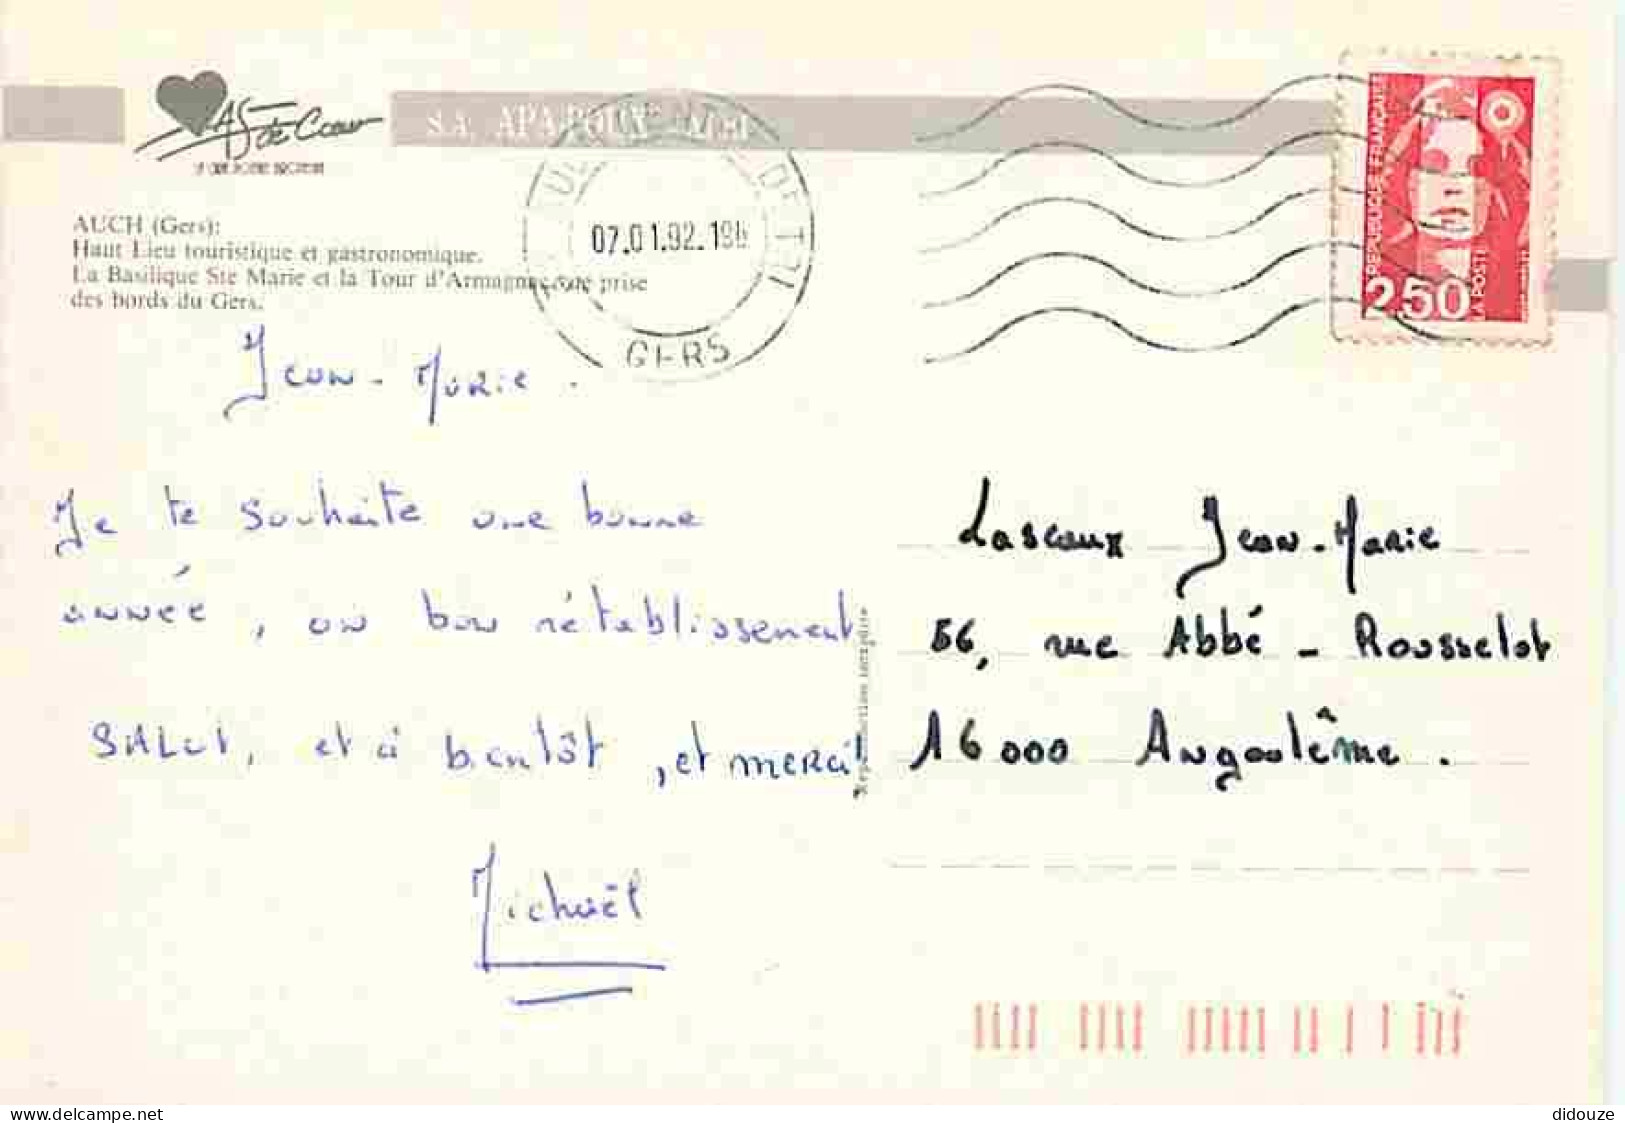 As de Coeur
S.A. APA-POUX - ALBI
AUCH (Gers):
Haut Lieu touristique et gastronomique.
La Basilique Ste Marie et la Tour d'Armagnac vue prise
des bords du Gers.
07.01.92.19H
GERS
REPUBLIQUE FRANÇAISE
2,50
LA POSTE
Jean-Marie.
Je te souhaite une bonne
année, un bon rétablissement
SALUT, et à bientôt, et merci!
Michaël
Reproduction interdite
Lascaux Jean-Marie
56, rue Abbé - Rousselot
16000 Angoulême.
delcampe.net
didouze